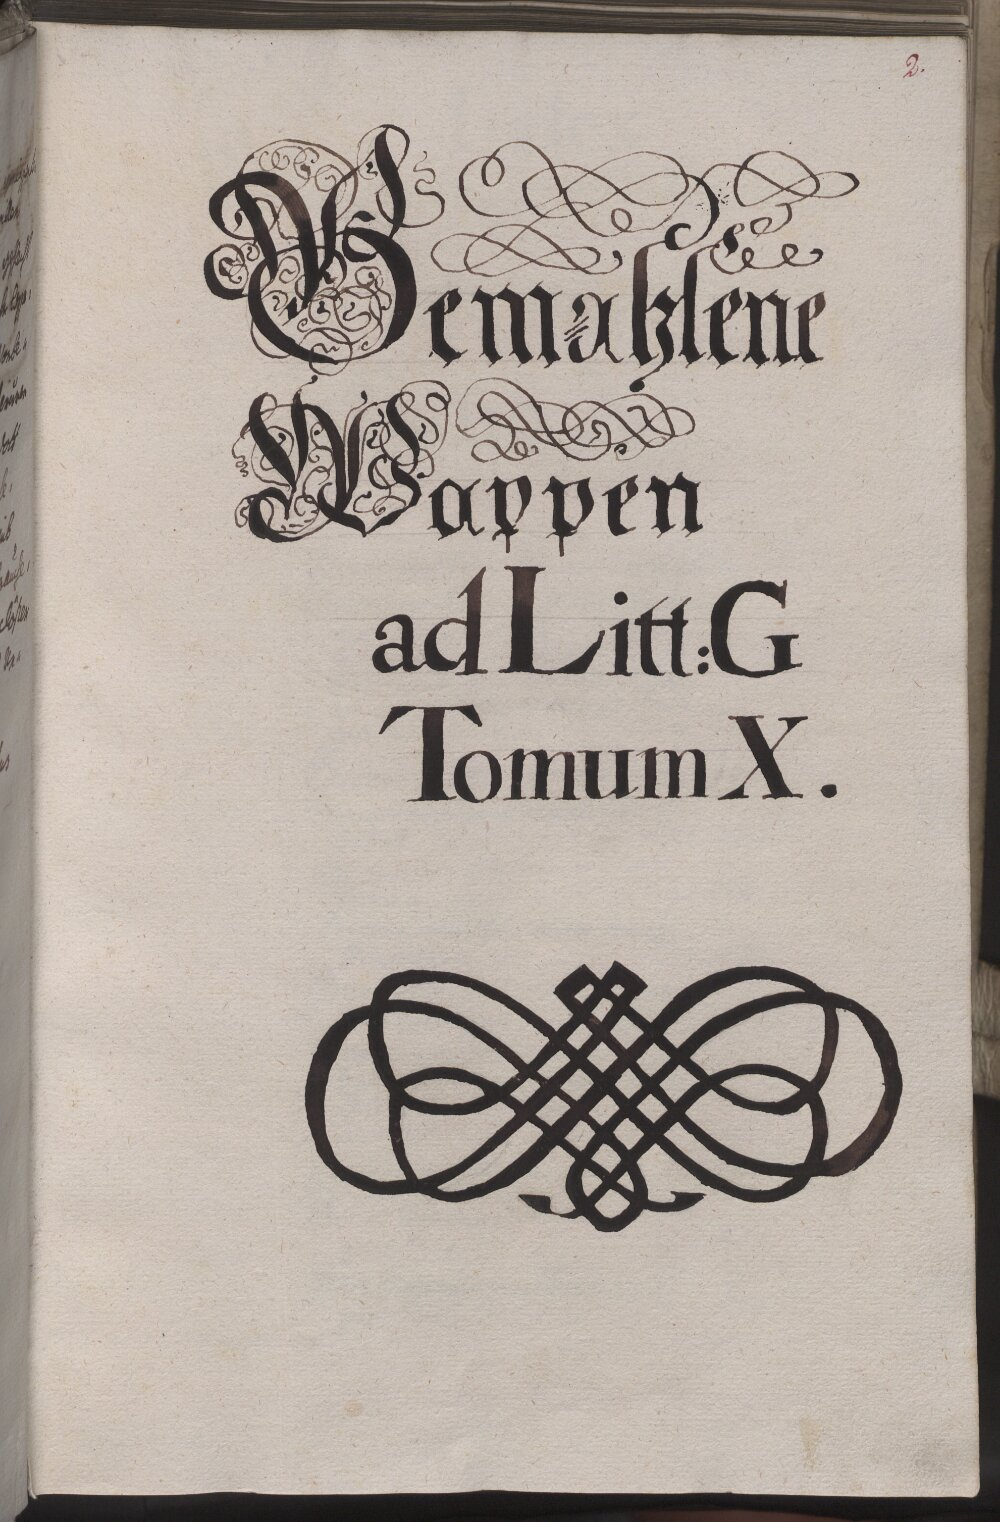 2.
Gemahlene
Wappen
ad Litt: G
Tomum X.